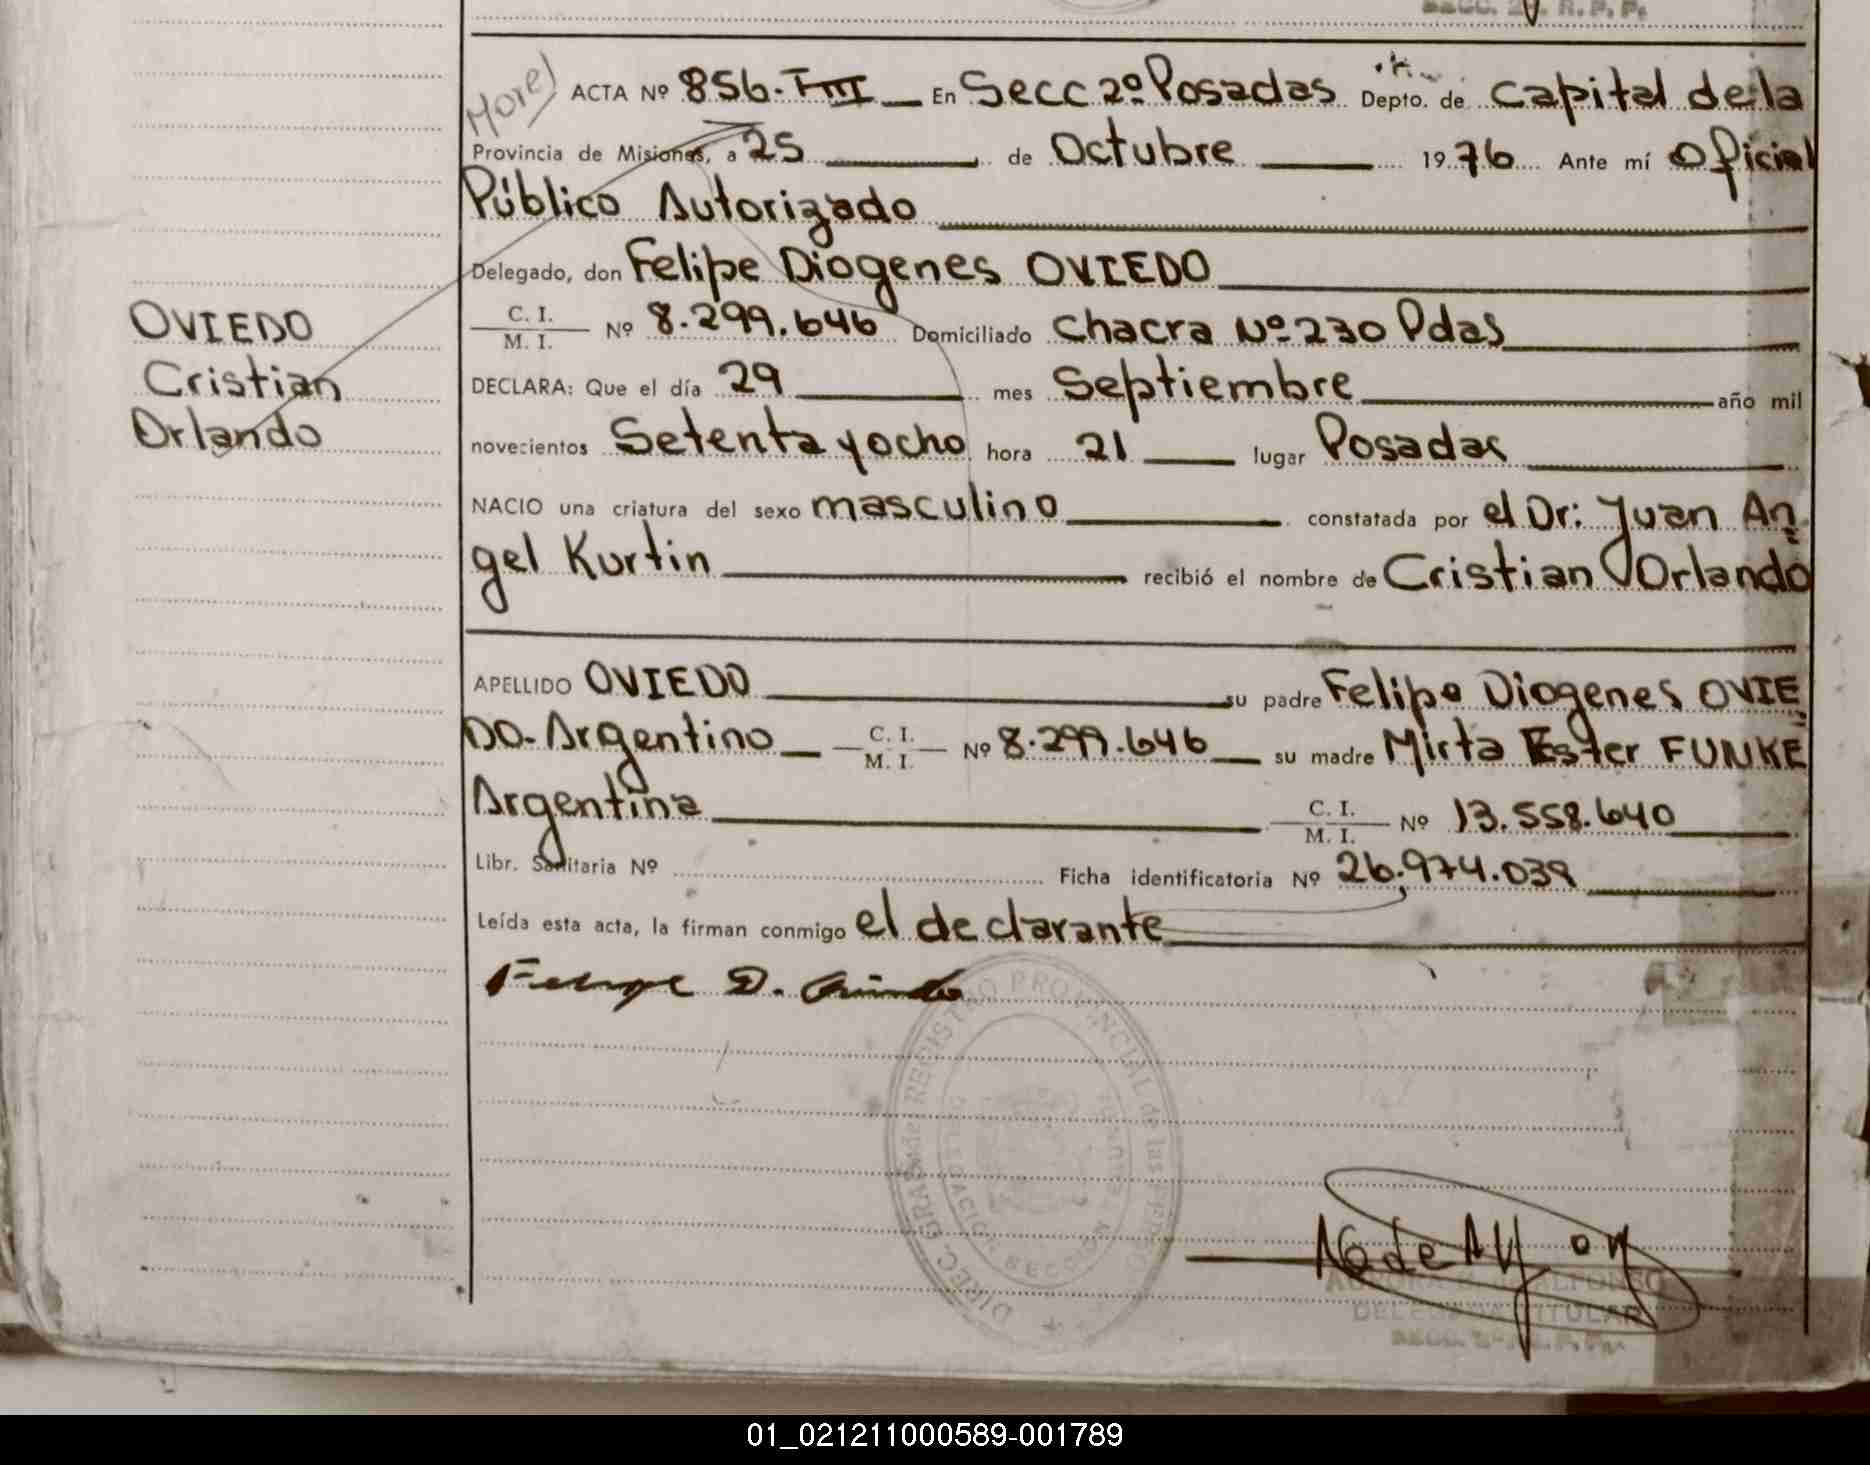 SECC. 2ª. R. P. P.
More)
ACTA Nº 856-TIII En Secc 2º Posadas Depto. de Capital de la
Provincia de Misiones, a 25 de Octubre 1976 Ante mí Oficial
Público Autorizado
Delegado, don Felipe Diogenes OVIEDO
C. I.
M. I. Nº 8.299.646 Domiciliado Chacra Nº 230 Pdas
DECLARA: Que el día 29 mes Septiembre año mil
novecientos Setenta y ocho hora 21 lugar Posadas
NACIO una criatura del sexo masculino constatada por el Dr: Juan An
gel Kurtin recibió el nombre de Cristian Orlando
OVIEDO
Cristian
Orlando
APELLIDO OVIEDO su padre Felipe Diogenes OVIE
DO-Argentino C. I. M. I. Nº 8.299.646 su madre Mirta Ester FUNKE
Argentina C. I. M. I. Nº 13.558.640
Libr. Sanitaria Nº Ficha identificatoria Nº 26.974.039
Leída esta acta, la firman conmigo el declarante
Felipe D. Oviedo
DIREC. GRAL. de REGISTRO PROVINCIAL de las PERSONAS
DELEGACION SECCION
ALFONSO
DELEGADA TITULAR
SECC. 2ª. R. P. P.
01_021211000589-001789